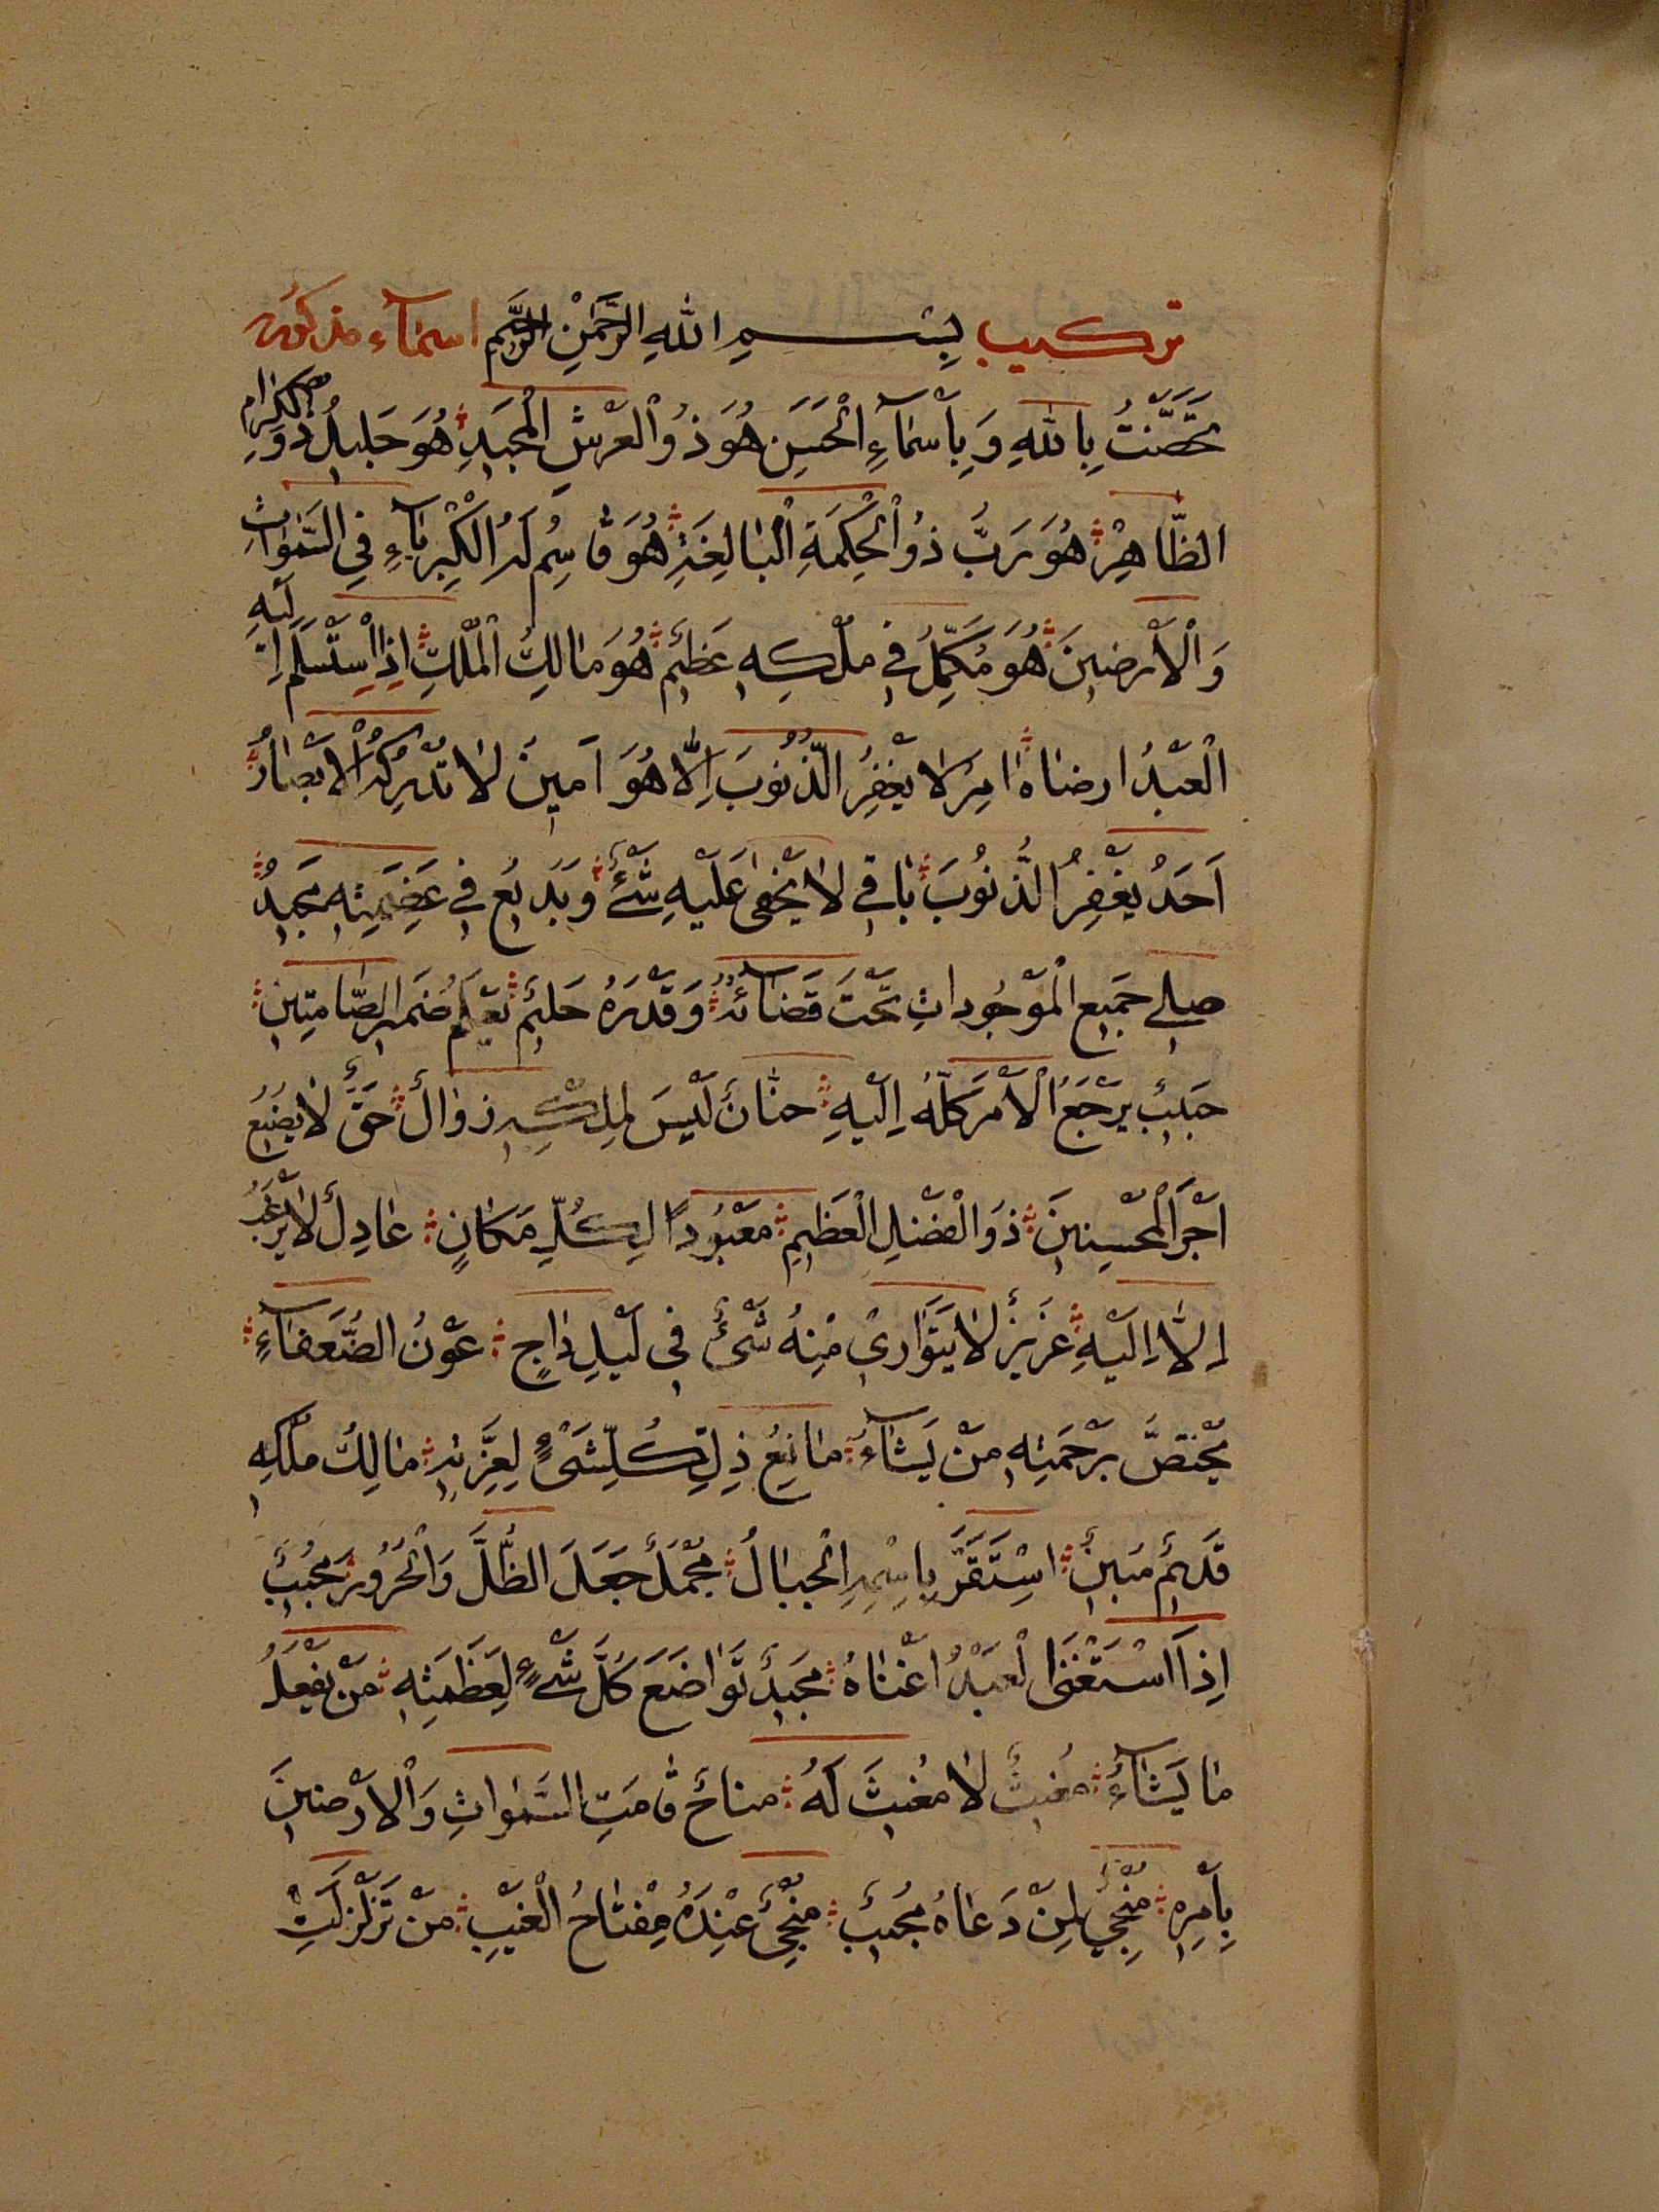 تركيب بِسْمِ اللهِ الرَّحْمٰنِ الرَّحِيْمِ اسمآء مذكوره
تَحَصَّنْتُ بِاللهِ وَبِاَسْمَآءِ الْحَسَنِ هُوَ ذُو الْعَرْشِ الْمَجِيْدِ هُوَ جَلِيْلٌ ذُو الْكِرَامِ
الظَّاهِرِ هُوَ رَبٌّ ذُو الْحِكْمَةِ الْبَالِغَةِ هُوَ قَاسِمٌ لَهُ الْكِبْرِيَآءِ فِي السَّمٰوَاتِ
وَالْاَرْضِيْنَ هُوَ مُكَمِّلٌ فِي مُلْكِهِ عَظِيْمٌ هُوَ مَالِكُ الْمُلْكِ اِذَا اسْتَسْلَمَ اِلَيْهِ
الْعَبْدُ ارضاهُ امِرٌ لا يَغْفِرُ الذُّنُوْبَ اِلَّا هُوَ اَمِيْن لَا تُدْرِكُهُ الْاَبْصَارُ
اَحَدٌ يَغْفِرُ الذُّنُوْبَ بَاقِي لَا يَخْفٰى عَلَيْهِ شَيْءٌ وَبَدِيْعٌ فِي عَضَمِيَتِهِ مَجِيْدٌ
صلى جَمِيع الْمَوْجُودَاتِ تَحْتَ قَضَآئِهِ وَقَدْرَهُ حَلِيْمٌ يَعْلَمُ ضَمِيرَ الصَّامِتِيْنَ
حَبِيْبٌ يَرْجَعُ الْاَمْرُ كُلُّهُ اِلَيْهِ حَنَّانٌ لَيْسَ لِمُلْكِهِ زَوَالٌ حَقٌّ لَا يُضِيْعُ
اَجْرَ الْمُحْسِنِيْنَ ذُو الْفَضْلِ الْعَظِيْمِ مَعْبُوْدٌ الِكُلِّ مَكَانٍ عَادِلٌ لَا يَرْغَبُ
اِلَّا اِلَيْهِ عَزِيْزٌ لَا يَتَوَارٰى مِنْهُ شَيْءٌ فِي لَيْلٍ دَاجٍ عَوْنُ الضُّعَفَآءِ
يَخْتَصُّ بِرَحْمَتِهِ مَنْ يَشَآءُ مَانِعٌ ذِلَّ كُلِّ شَيْءٍ لِعِزَّتِهِ مَالِكٌ مُلْكِهِ
قَدِيْمٌ مبين اسْتَقَرَّ بِاسْمِهِ الْجِبَالُ مُجْمِلٌ جَعَلَ الظِّلَّ وَالْحَرُوْرَ مُجِيْبٌ
اِذَا اسْتَغْنَى الْعَبْدُ اَغْنَاهُ مَجِيْدٌ تَوَاضَعَ كُلُّ شَيْءٍ لِعَظَمَتِهِ مَنْ يَفْعَلُ
مَا يَشَآءُ مُغِيْثٌ لَا مُغِيْثَ لَهُ مناحٌ قَامَتِ السَّمٰوَاتِ وَالْاَرْضِيْنَ
بِاَمْرِهِ مُنْجِي لِمَنْ دَعَاهُ مُجِيْبٌ مُنْجِيٌ عِنْدَهُ مِفْتَاحُ الْغَيْبِ مَنْ تَزَلْزَلَتِ